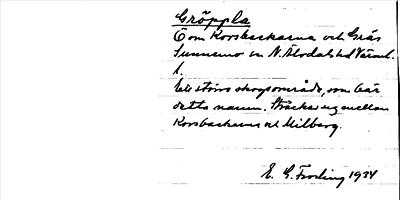 Gröppla
Ö om Korsbackarna och Gräs
Sunnemo sn N. Älvdals hd Värml.
l.
Ett större skogsområde, som bär
detta namn. Sträcker sig mellan
Korsbackarna och Milberg.
E. G. Froding 1934